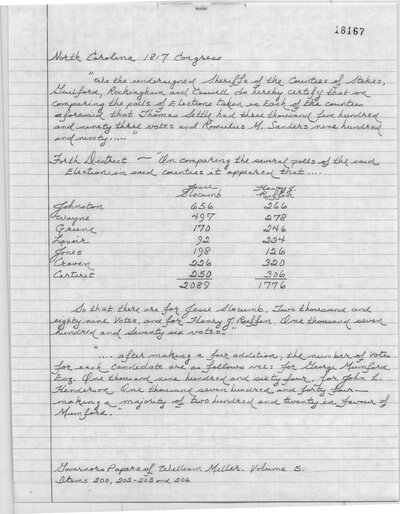 18167
North Carolina 1817 Congress
"We the undersigned Sheriffs of the Counties of Stokes,
Guilford, Rockingham and Caswell do hereby certify that on
comparing the polls of Elections taken in Each of the counties
aforesaid that Thomas Settle had three thousand five hundred
and ninety three votes and Romulus M. Sanders nine hundred
and ninety....."
Forth District — "On comparing the several polls of the said
Election in said counties it appeared that....
Jesse Slocumb Henry J. Ruffin
Johnston 656 266
Wayne 497 278
Greene 170 246
Lenoir 92 234
Jones 198 126
Craven 226 320
Carteret 250 306
2089 1776
So that there are for Jesse Slocumb, Two thousand and
eighty nine Votes, and for Henry J. Ruffin, One thousand seven
hundred and seventy six votes."
".... after making a fair addition, the number of Votes
for each Candidate are as follows viz: For George Mumford,
Esq. One thousand nine hundred and sixty four, for John L.
Henderson One thousand seven hundred and forty four—
making a majority of two hundred and twenty in favour of
Mumford."
Governors Papers of William Miller. Volume 5.
Items 200, 202-203 and 206